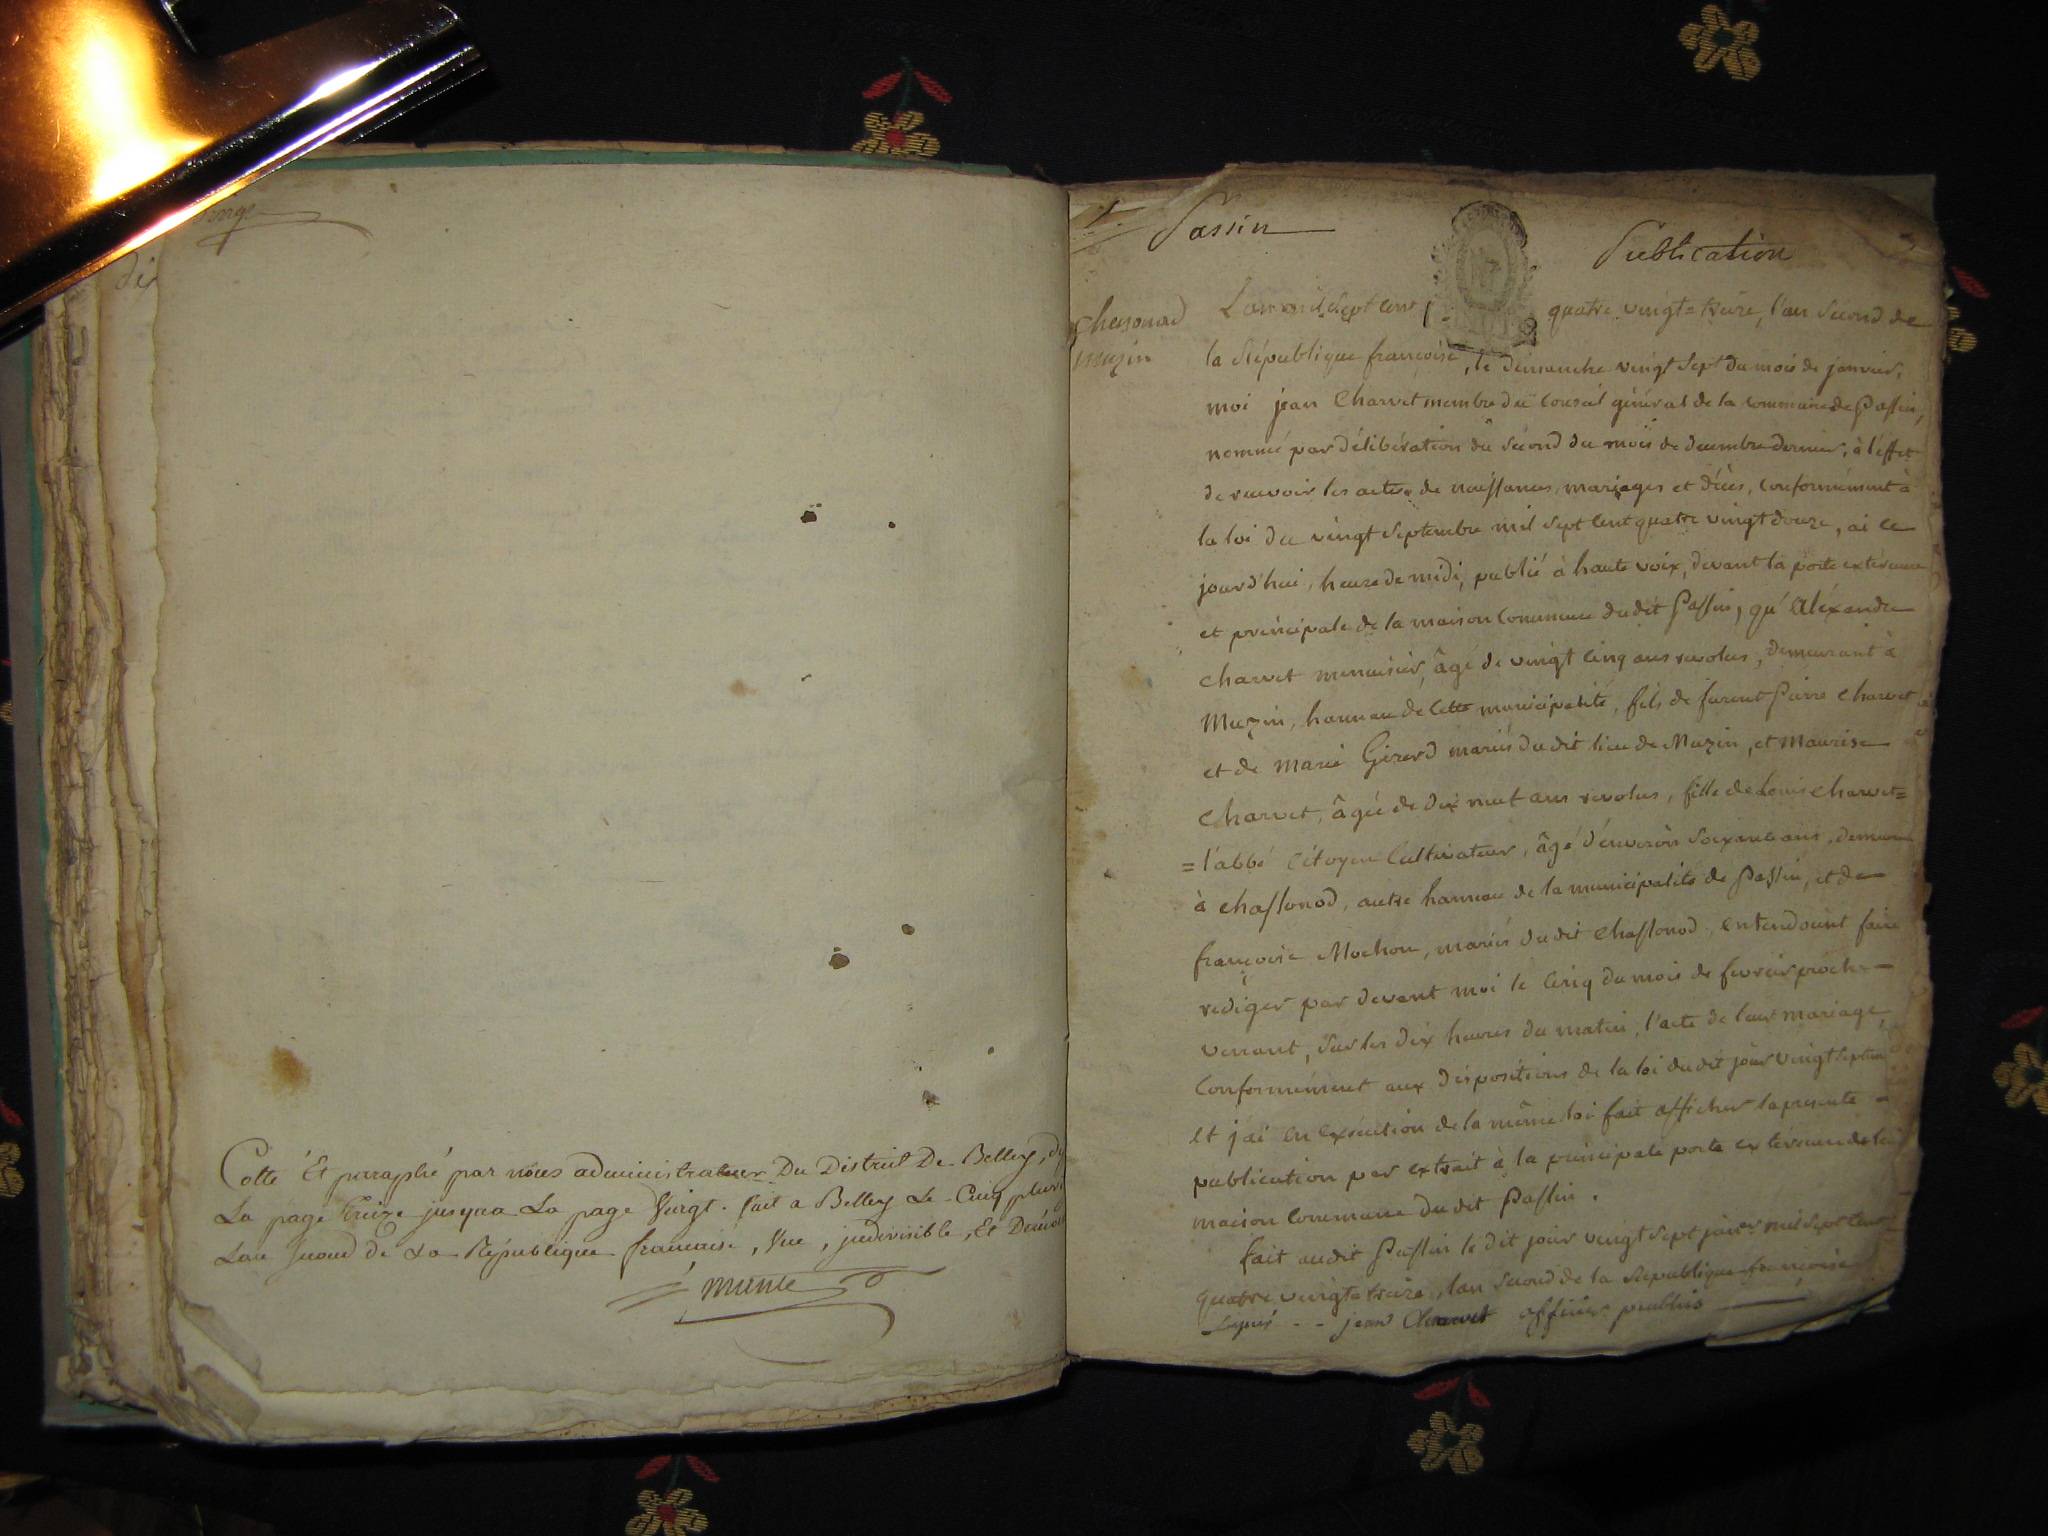 Cotté Et paraphé par nous administrateur Du District De Belley,
La page treize jusqua La page Vingt. fait a Belley Le Cinq pluvi
Lan second de La République francaise, Une, indivisible, Et Démoc
Passin
Publication
Chassonod
Muzin
L'an mil sept cent quatre vingt=treize, l'an second de
la République françoise, le dimanche vingt sept du mois de janvier,
moi jean Charvet membre du conseil général de la commune de Passin,
nommé par délibération du second du mois de decembre dernier, à l'effet
de recevoir les actes de naissances, mariages et décès, conformément à
la loi du vingt septembre mil sept cent quatre vingt douze, ai ce
jourd'hui, heure de midi, publié à haute voix, devant la porte exterieure
et principale de la maison commune dudit Passin, qu'Aléxandre
charvet menuisier, âgé de vingt cinq ans revolus, demeurant à
Muzin, hameau de cette municipalité, fils de furent Pierre charvet
et de marie Girerd mariés dudit lieu de Muzin, et maurise
Charvet, âgée de dix neuf ans revolus, fille de Louis charvet=
=l'abbé citoyen cultivateur, âgé d'environ soixante ans, demeurant
à chassonod, autre hameau de la municipalité de Passin, et de
françoise Mochon, mariés dudit chassonod, entendoient faire
rediger par devant moi le cinq du mois de fevrier proche
venant, sur les dix heures du matin, l'acte de leur mariage,
conformément aux dispositions de la loi dudit jour vingt septem
et j'ai en exécution de la même loi fait afficher la presente
publication par extrait à la principale porte exterieure de la
maison commune dudit Passin.
fait audit Passin le dit jour vingt sept janer mil sept cent
quatre vingt=treize, l'an second de la République françoise
signé - - jean Charvet officier public